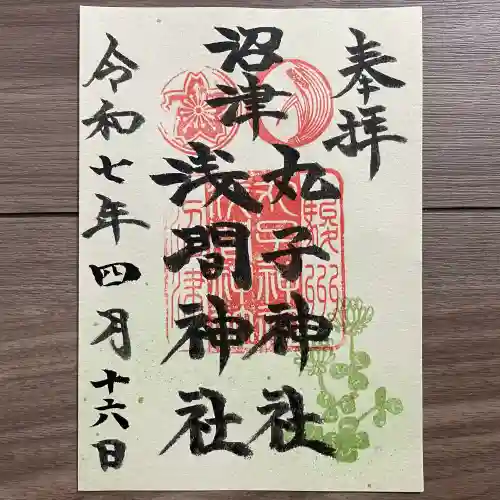 奉拝
沼津
丸子神社
浅間神社
令和七年四月十六日